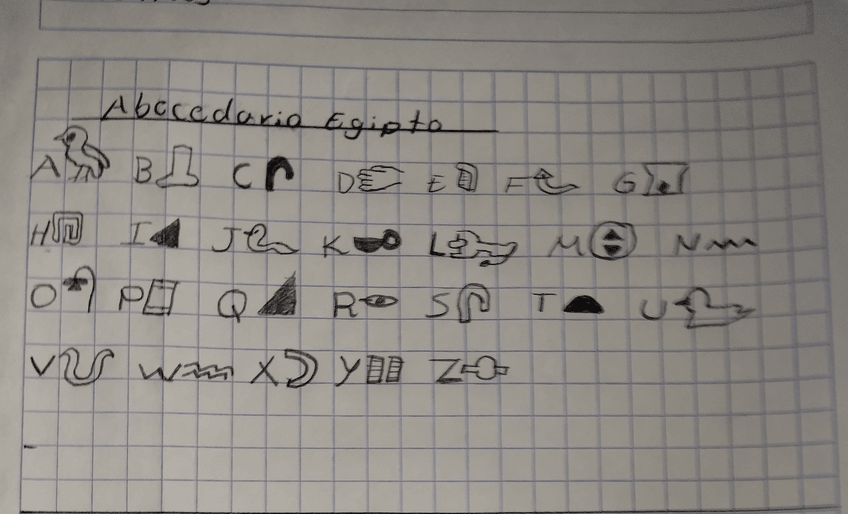 Abecedario Egipto
A B C D E F G
H I J K L M N
O P Q R S T U
V W X Y Z